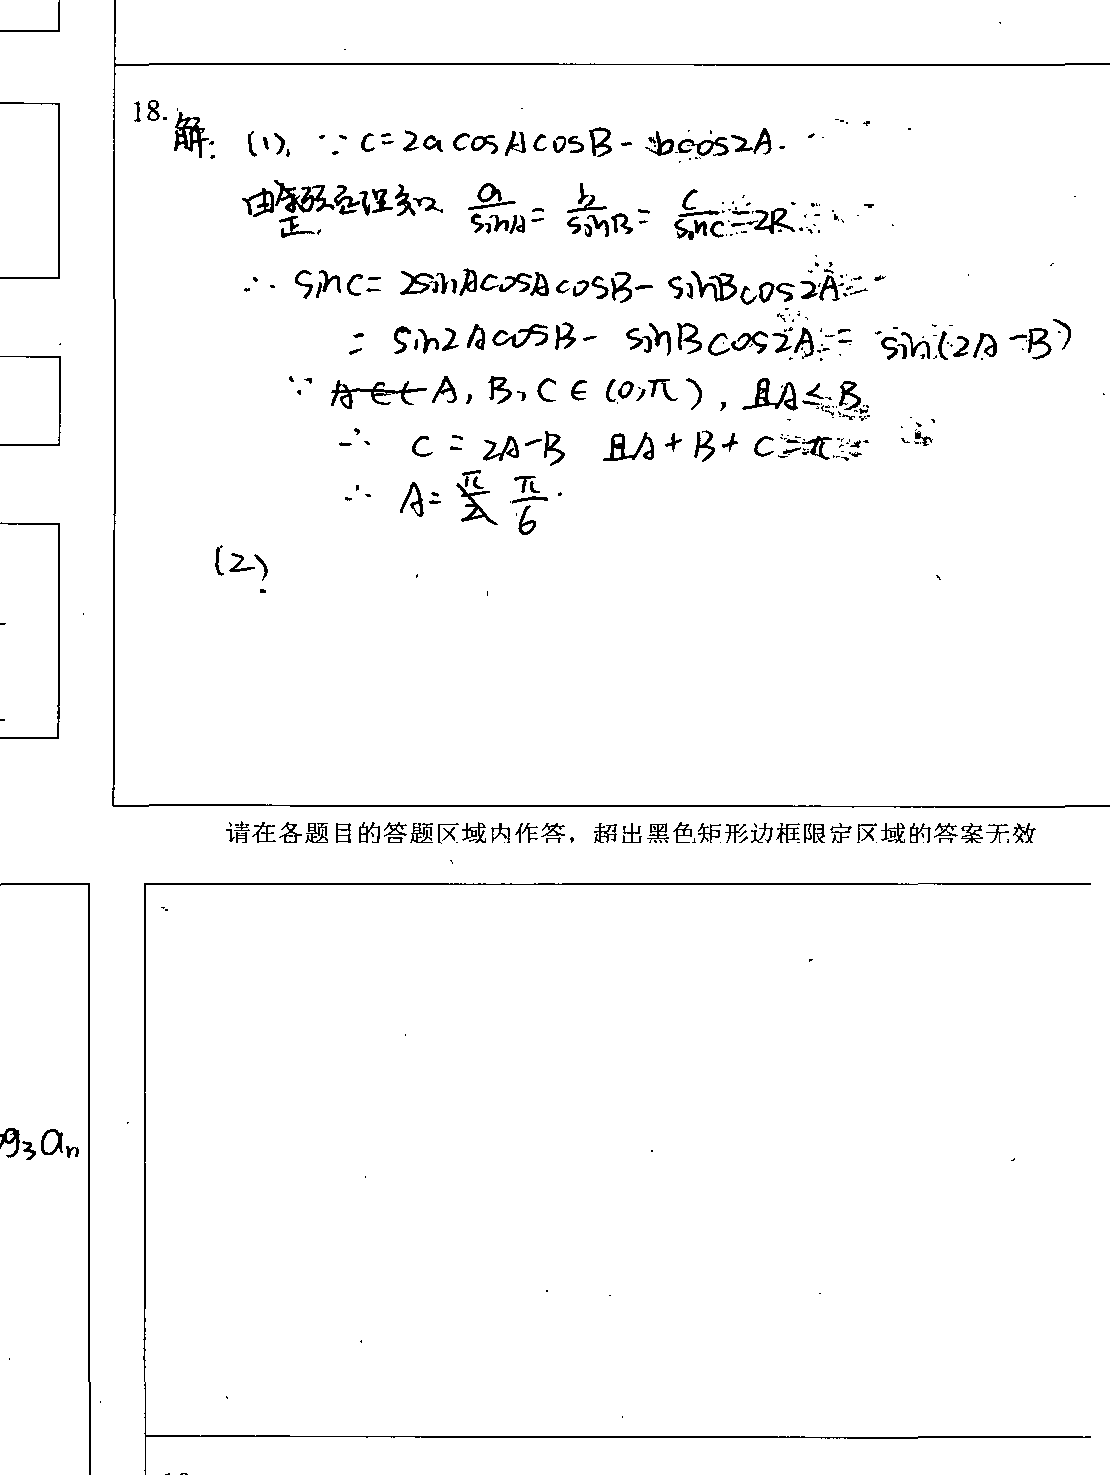 18.
解: (1), ∵ c=2acosAcosB-bcos2A.
由正弦定理知 a/sinA = b/sinB = c/sinC = 2R.
∴ sinC= 2sinAcosAcosB- sinBcos2A=
= sin2AcosB- sinBcos2A = sin(2A-B)
∵ A, B, C∈(0,π), 且A≤B
∴ C = 2A-B 且A+B+C=π
∴ A= π/6.
(2)
请在各题目的答题区域内作答，超出黑色矩形边框限定区域的答案无效
g₃aₙ